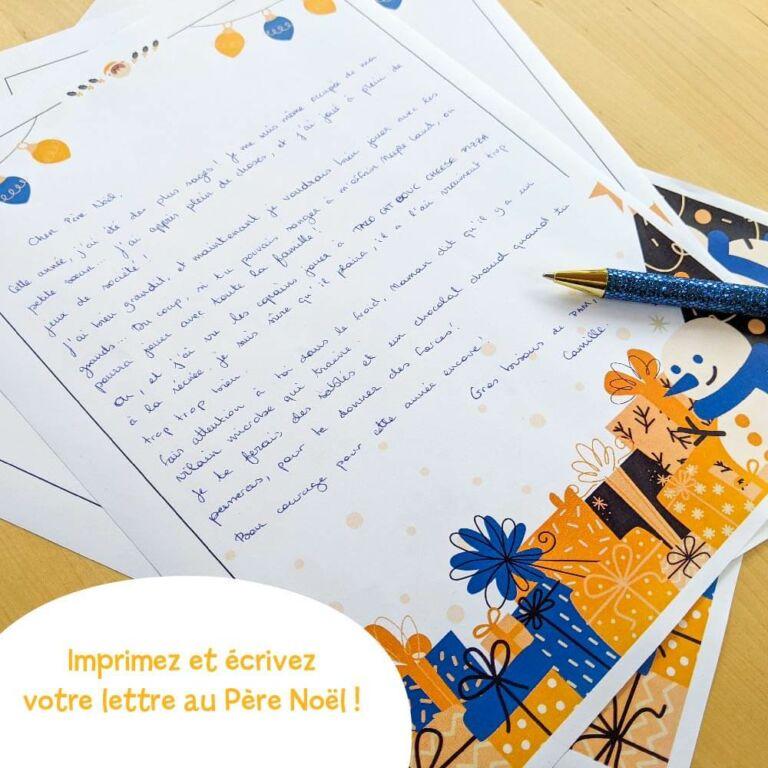 Cher Père Noël,
Cette année, j'ai été des plus sages ! Je me suis même occupée de ma
petite sœur... j'ai appris plein de choses, et j'ai joué à plein de
jeux de société !
J'ai bien grandit, et maintenant je voudrais bien jouer avec les
grands... Du coup, si tu pouvais songer à m'offrir Meeple Land, on
pourra jouer avec toute la famille !
Oh, et j'ai vu les copains jouer à TACO CAT BOUC CHEESE PIZZA
à la récrée je suis sûre qu'il plaira, il a l'air vraiment trop
trop trop bien.
Fais attention à toi dans le froid, Maman dit qu'il y a un
vilain microbe qui traine.
Je te ferais des sablés et un chocolat chaud quand tu
passeras, pour te donner des forces !
Bon courage pour cette année encore !
Gros bisous de PAM,
Camille.
Imprimez et écrivez
votre lettre au Père Noël !